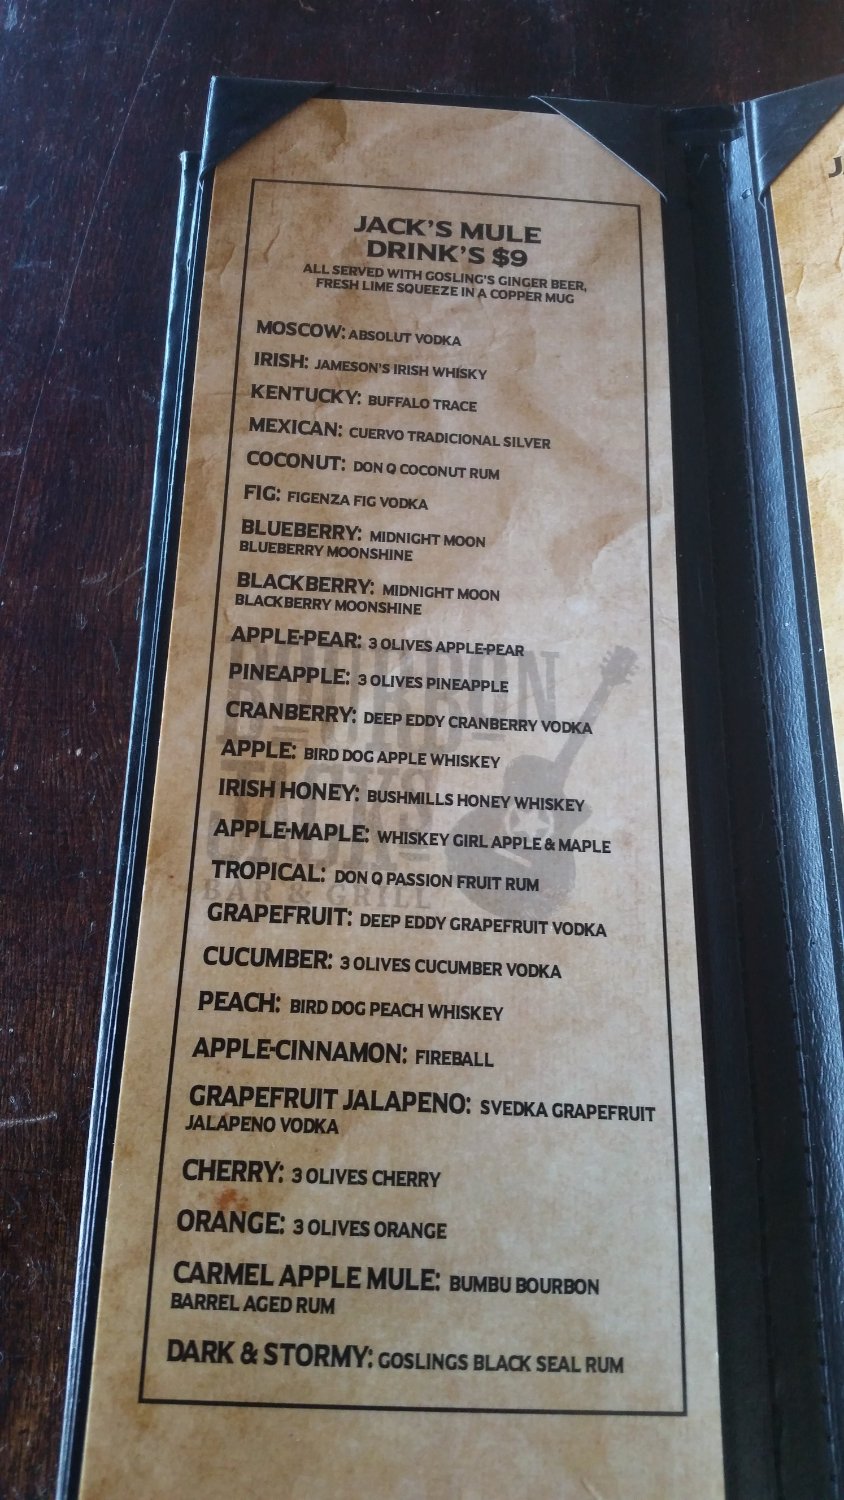 JACK'S MULE
DRINK'S $9
ALL SERVED WITH GOSLING'S GINGER BEER,
FRESH LIME SQUEEZE IN A COPPER MUG
MOSCOW: ABSOLUT VODKA
IRISH: JAMESON'S IRISH WHISKY
KENTUCKY: BUFFALO TRACE
MEXICAN: CUERVO TRADICIONAL SILVER
COCONUT: DON Q COCONUT RUM
FIG: FIGENZA FIG VODKA
BLUEBERRY: MIDNIGHT MOON
BLUEBERRY MOONSHINE
BLACKBERRY: MIDNIGHT MOON
BLACKBERRY MOONSHINE
APPLE-PEAR: 3 OLIVES APPLE-PEAR
PINEAPPLE: 3 OLIVES PINEAPPLE
CRANBERRY: DEEP EDDY CRANBERRY VODKA
APPLE: BIRD DOG APPLE WHISKEY
IRISH HONEY: BUSHMILLS HONEY WHISKEY
APPLE-MAPLE: WHISKEY GIRL APPLE & MAPLE
TROPICAL: DON Q PASSION FRUIT RUM
GRAPEFRUIT: DEEP EDDY GRAPEFRUIT VODKA
CUCUMBER: 3 OLIVES CUCUMBER VODKA
PEACH: BIRD DOG PEACH WHISKEY
APPLE-CINNAMON: FIREBALL
GRAPEFRUIT JALAPENO: SVEDKA GRAPEFRUIT
JALAPENO VODKA
CHERRY: 3 OLIVES CHERRY
ORANGE: 3 OLIVES ORANGE
CARMEL APPLE MULE: BUMBU BOURBON
BARREL AGED RUM
DARK & STORMY: GOSLINGS BLACK SEAL RUM
BOURBON
JACKS
BAR & GRILL